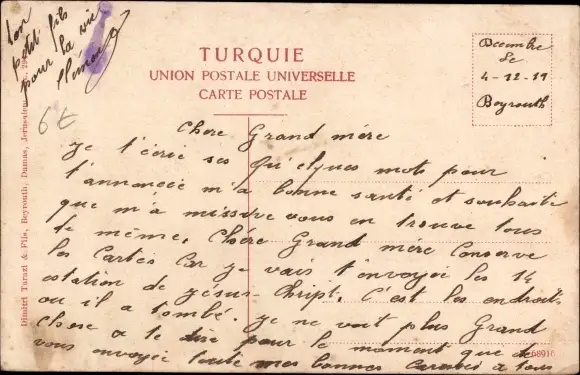 ton
petit fils
pour la vie
TURQUIE
UNION POSTALE UNIVERSELLE
CARTE POSTALE
Decembre
le
4-12-11
Beyrouth
6 E
Dimitri Tarazi & Fils, Beyrouth, Damas, Jerusalem
Chere Grand mére
Je t'écrie ses qu'elques mots pour
t'annoncée m'a bonne santé et souhaite
que m'a missive vous en trouve tous
de même. Chére Grand mére Conserve
les Cartes Car je vais t'envoyée les 14
estation de Jésus-Christ. C'est les endroit
ou il a tombé. Je ne voit plus Grand
chose a te dire pour le moment que de
vous envoyée toute mes bonnes a tous
68916